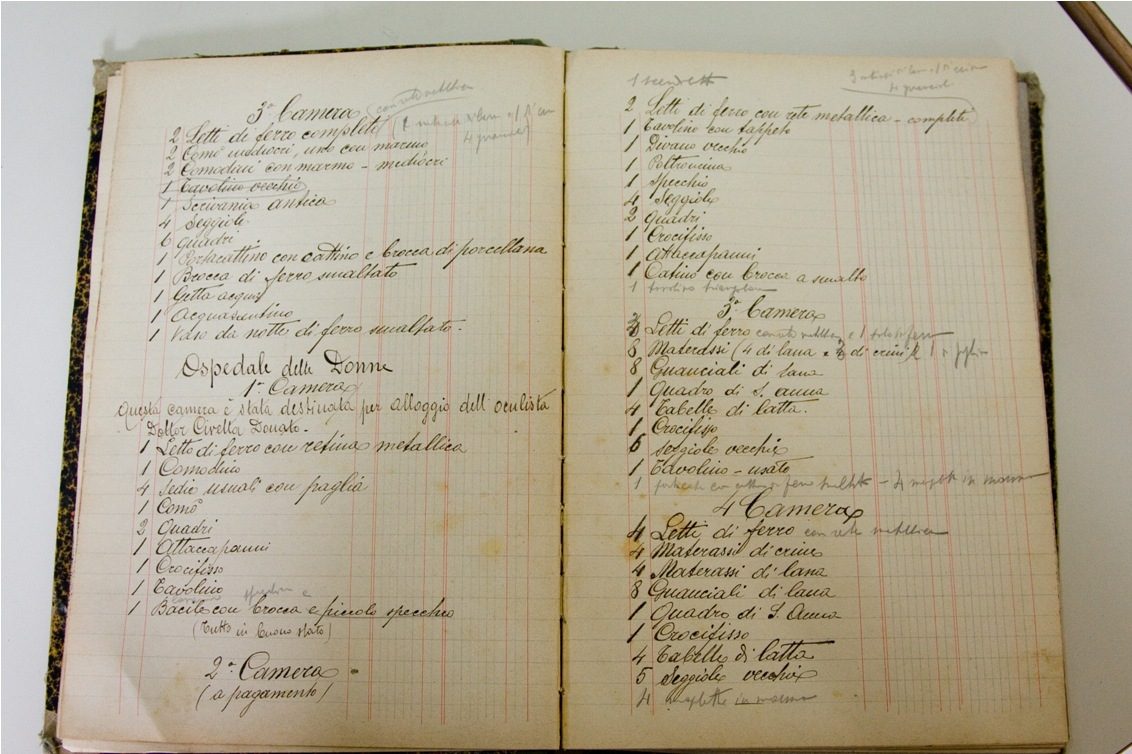 3ª Camera con rete metallica
2 Letti di ferro completi
2 Comò mediocri, uno con marmo
2 Comodini con marmo - mediocri
1 Tavolino vecchio
1 Scrivania antica
4 Seggiole
6 quadri
1 Portacattino con cattino e brocca di porcellana
1 Brocca di ferro smaltato
1 Getta acqua
1 Acquasantino
1 Vaso da notte di ferro smaltato.
Ospedale delle Donne
1ª Camera
Questa camera è stata destinata per alloggio dell'oculista
Dottor Civella Donato.
1 Letto di ferro con retina metallica
1 Comodino
4 Sedie usuali con paglia
1 Comò
2 Quadri
1 Attaccapanni
1 Crocifisso
1 Tavolino
1 Bacile con brocca e piccolo specchio
(Tutto in buono stato)
2ª Camera
(a pagamento)
2 Letti di ferro con rete metallica - completi
1 Tavolino con tappeto
1 Divano vecchio
1 Poltroncina
1 Specchio
4 Seggiole
2 quadri
1 Crocifisso
1 Attaccapanni
1 Catino con brocca a smalto
1 tavolino triangolare
3ª Camera
Letti di ferro con rete metallica e 1
8 Materassi (4 di lana e di crini
8 Guanciali di lana
1 Quadro di S. Anna
4 Tabelle di latta.
1 Crocifisso
6 seggiole vecchie
1 Tavolino - usato
1
4 Camera
4 Letti di ferro con rete metallica
4 Materassi di crine
4 Materassi di lana
8 Guanciali di lana
1 Quadro di S. Anna
1 Crocifisso
4 Tabelle di latta
5 Seggiole vecchie
4 in